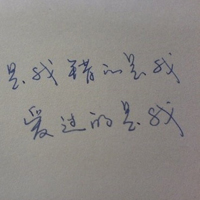 是我错的是我
爱过的是我